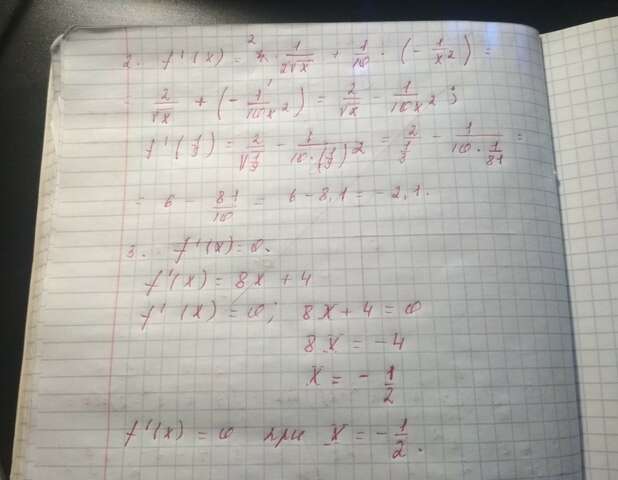 2. f'(x) = 4² · 1/(2√x) + 1/10 · (- 1/x²) =
= 2/√x + (- 1/(10x²)) = 2/√x - 1/(10x²);
f'(1/9) = 2/√(1/9) - 1/(10·(1/9)²) = 2/(1/3) - 1/(10 · 1/81) =
= 6 - 81/10 = 6 - 8,1 = -2,1.
3. f'(x) = 0.
f'(x) = 8x + 4
f'(x) = 0; 8x + 4 = 0
8x = -4
x = - 1/2
f'(x) = 0 при x = - 1/2.